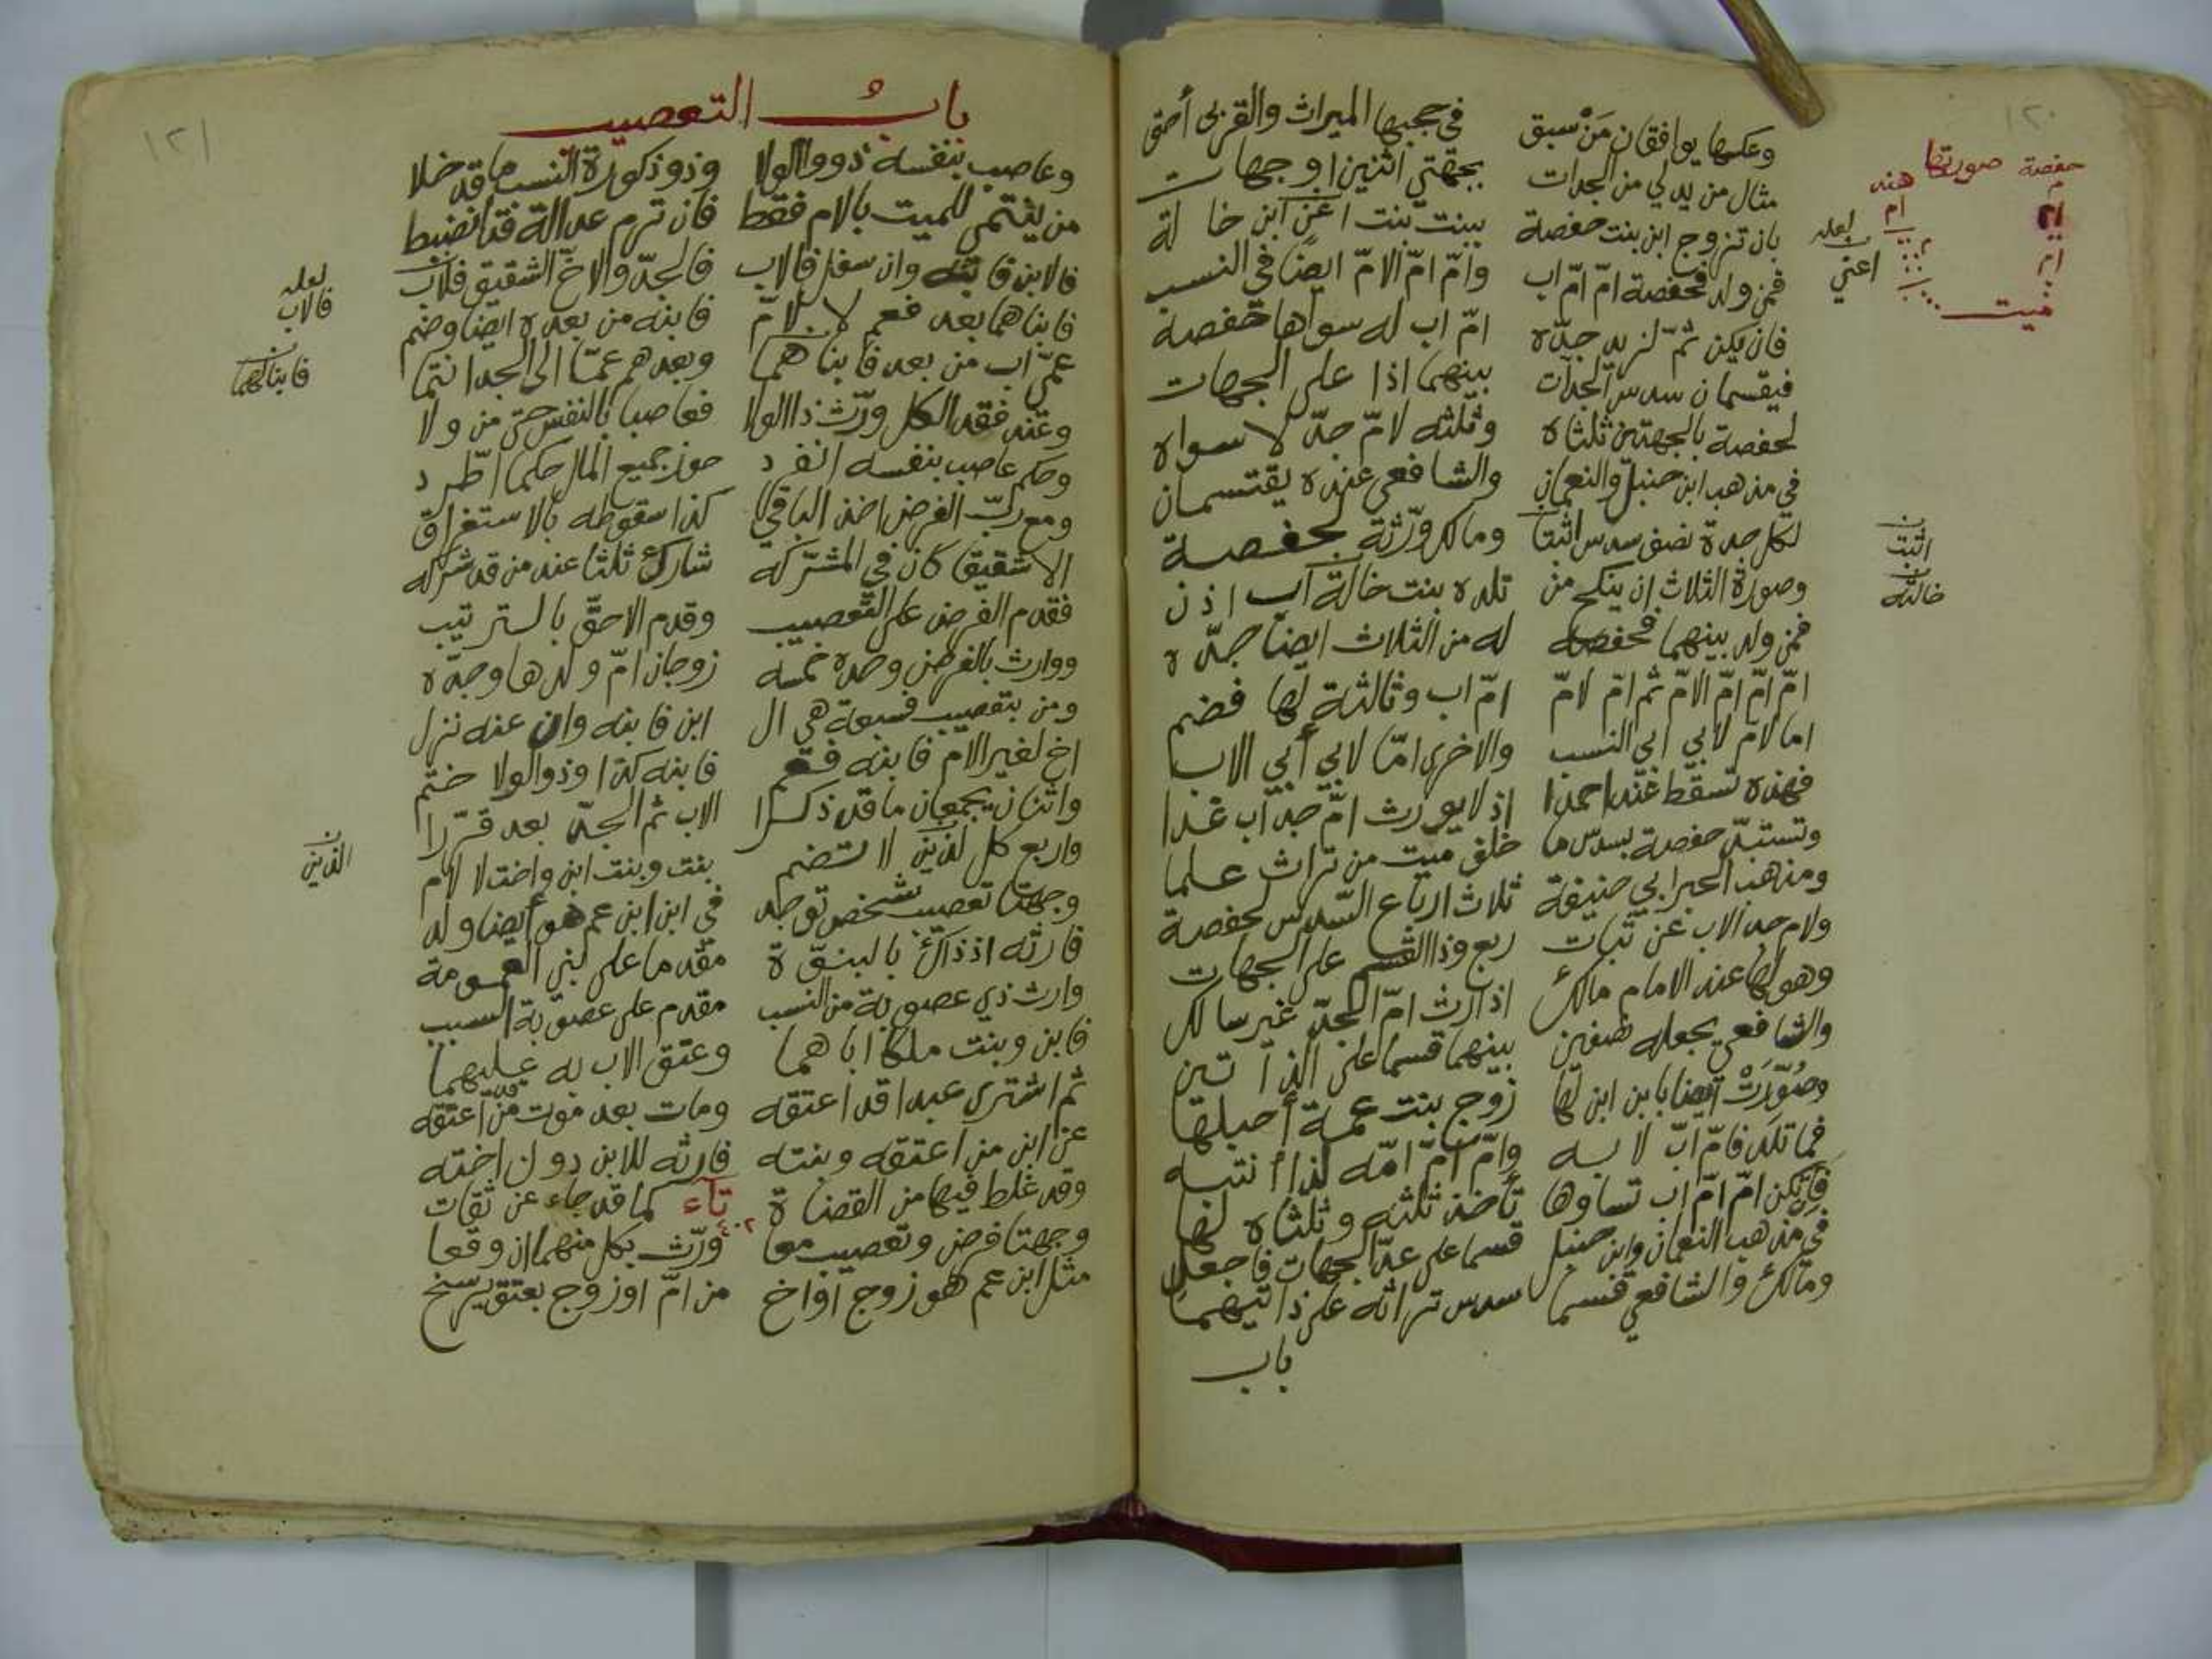 ١٢٠
وعكسها يوافقان مَنْ سبق في حجبها الميراث والقربى أحق
مثال من يدلي من الجدات بجهتي اثنين او جهات
بان تزوج ابن بنت حفصة ببنت بنت اعن ابن خالة
فمن ولد فحفصة امّ امّ اب وامّ امّ الامّ ايضا في النسب
فان يكن ثمّ لزيد جدّه امّ اب له سواها حفصة
فيقسمان سدس الجدات بينهما اذا على الجهات
لحفصة بالجهتين ثلثاه وثلثه لامّ جدّ لا سواه
في مذهب ابن حنبل والنعمان والشافعي عنده يقتسمان
لكل جدة نصف سدس اثبتا ومالك ورّثه لحفصة
وصورة الثلاث ان ينكح من تلده بنت خالة اب اذن
فمن ولد بينهما فحفصه له من الثلاث ايضا جدّه
امّ امّ امّ الامّ ثم امّ لامّ امّ اب وثالثة لها فضم
اما لام لابي ابي النسب والاخرى امّا لابي أبي الاب
فهذه تسقط عند احمدا اذ لا يورث امّ جد اب غدا
وتستبدّ حفصة بسدس ما خلف ميت من تراث علما
ومذهب الحبر ابي حنيفة ثلاث ارباع السدس لحفصة
ولام جد الاب عن ثبات ربع وذا القسم على الجهات
وهو لها عند الامام مالك اذ ارث امّ الجدّ غير سالك
والشافعي يجعله نصفين بينهما قسما على الذاتين
وصُوّرَتْ ايضا بابن ابن لها زوج بنت عمة أحبلها
فما تلد فامّ ابّ لابيه وامّ امّ امّه لذا انتبه
فان تكن امّ امّ اب تساوها تأخذ ثلثه وثلثاه لها
في مذهب النعمان وابن حنبل قسما على عدّ الجهات فاجعل
ومالك والشافعي قسما سدس تراثه على ذاتيهما
باب
حفصة صورتها هند
ام ام
ام
ميت
لعله
اعني
اثبت
خالته
١٢١
باب التعصيب
وعاصب بنفسه ذو والولا وذو ذكورة النسب ما قد خلا
من ينتمي للميت بالام فقط فان ترم عد الة فتانضبط
فالابن فابنه وان سفل فالاب فالجدّ والاخ الشقيق فلاب
فابناهما بعد فعم لا لامّ فابنه من بعده ايضا وضم
عمّ اب من بعد فابناهما وبعدهم عمّا الى الجد انتما
وعند فقد الكل ورّث ذا الولا فعاصبا بالنفس حتى من ولا
وحكم عاصب بنفسه انفرد حوز جميع المال حكما اطّرد
ومع ربّ الفرض اخذ الباقي كذا سقوطه بالاستغراق
الا شقيقا كان في المشتركه شارك ثلثا عند من قد شركه
فقدم الفرض على التعصيب وقدم الاحقّ بالترتيب
ووارث بالفرض وحده خمسه زوجان امّ ولدها وجدّه
ومن بتعصيب فسبعة هي ال ابن فابنه وان عنه نزل
اخ لغير الام فابنه فعم فابنه كذا وذو الولا ختم
واثنان يجمعان ما قد ذكرا الاب ثم الجدّ بعد قرّرا
واربع كل لذين لا تضم بنت وبنت ابن واخت لا لام
وجهتا تعصيب شخص توجد في ابن ابن عم هو أيضا ولد
فارثه اذ ذاك بالبنوّة مقدما على بني العمومة
وارث ذي عصوبة من النسب مقدم على عصوبة السبب
فابن وبنت ملكا اباهما وعتق الاب به عليهما
ثم اشترى عبدا قد اعتقه ومات بعد موت من قد اعتقه
عن ابن من اعتقه وبنته فارثه للابن دون اخته
وقد غلط فيها من القضاة تآء كما قد جاء عن ثقات
٤٠٢
وجهتا فرض وتعصيب معا ورّث بكل منهما ان وقعا
مثل ابن عم هو زوج او اخ من امّ او زوج بعتق يرسخ
لعله
فالاب
فابنالهما
الذين